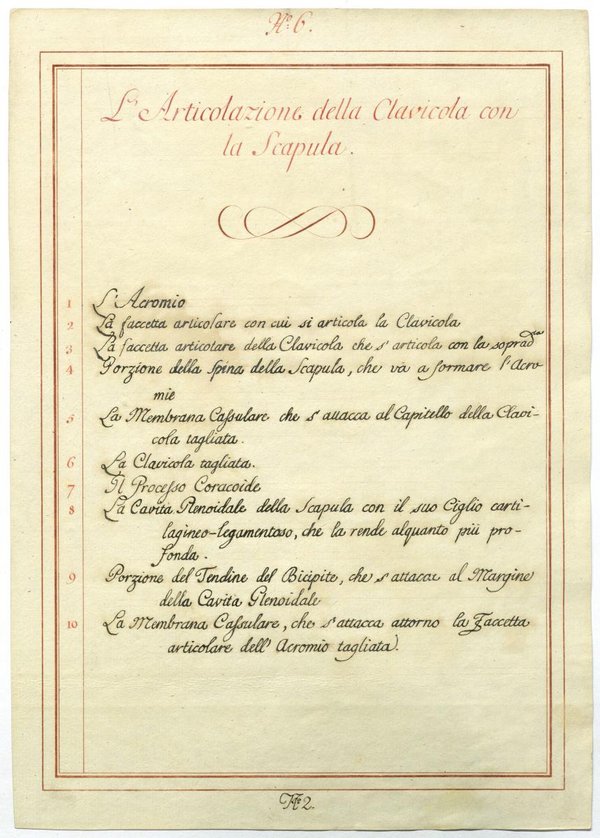 N.º 6.
L'Articolazione della Clavicola con
la Scapula.
1 L'Acromio
2 La faccetta articolare con cui si articola la Clavicola
3 La faccetta articolare della Clavicola che s'articola con la soprad.ta
4 Porzione della Spina della Scapula, che và a formare l'Acro-
mio
5 La Membrana Cassulare che s'attacca al Capitello della Clavi-
cola tagliata.
6 La Clavicola tagliata.
7 Il Processo Coracoide
8 La Cavita Glenoidale della Scapula con il suo Ciglio carti-
lagineo-legamentoso, che la rende alquanto più pro-
fonda.
9 Porzione del Tendine del Bicipite, che s'attacca al Margine
della Cavita Glenoidale
10 La Membrana Cassulare, che s'attacca attorno la Faccetta
articolare dell'Acromio tagliata.